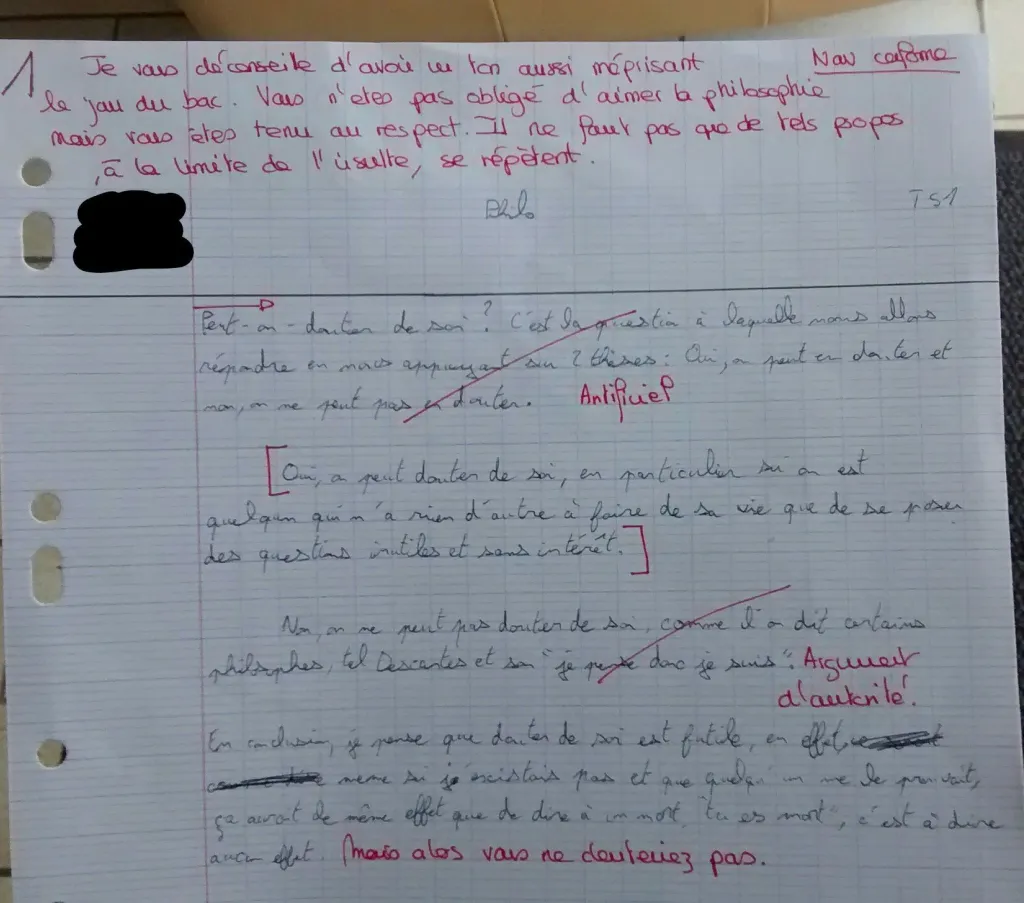 1
Je vous déconseille d'avoir un ton aussi méprisant
Non conforme
le jour du bac. Vous n'etes pas obligé d'aimer la philosophie
mais vous etes tenu au respect. Il ne faut pas que de tels propos
, à la limite de l'insulte, se répètent.
Philo
TS1
Peut-on-douter de soi ? C'est la question à laquelle nous allons
répondre en nous appuyant sur 2 thèses : Oui, on peut en douter et
non, on ne peut pas en douter. Artificiel
Oui, on peut douter de soi, en particulier si on est
quelqun qui n'a rien d'autre à faire de sa vie que de se poser
des questions inutiles et sans intérêt.
Non, on ne peut pas douter de soi, comme l'on dit certains
philosophes, tel Descartes et son "je pense donc je suis". Argument
d'autorité !
En conclusion, je pense que douter de soi est futile, en effet,
meme si je existais pas et que quelqu'un me le prouvait,
ça aurait de même effet que de dire à un mort "tu es mort", c'est à dire
aucun effet. Mais alors vous ne douteriez pas.